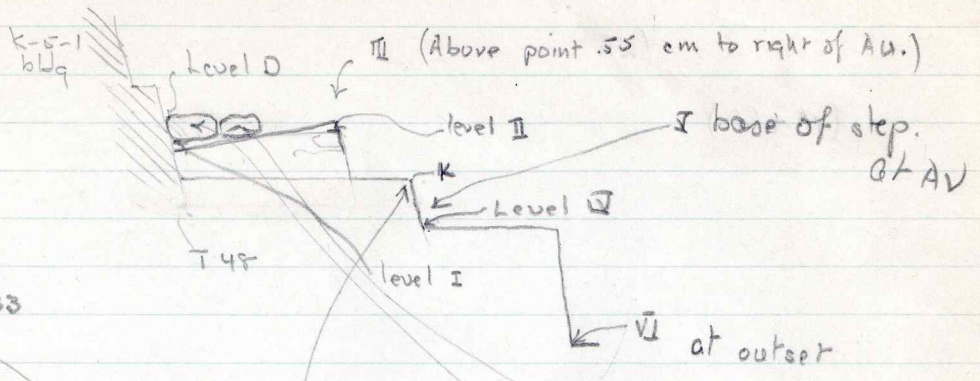 K-5-1
bldg
Level D
III (Above point .55 cm to right of AU.)
level II
V base of step.
at AV
K
Level IV
T-48
level I
33
VI at outset